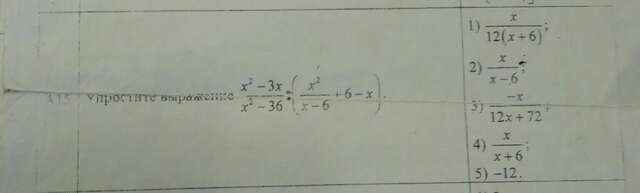 А15 Упростите выражение (x² − 3x)/(x² − 36) : (x²/(x − 6) + 6 − x).
1) x/(12(x + 6));
2) x/(x − 6);
3) −x/(12x + 72);
4) x/(x + 6);
5) −12.